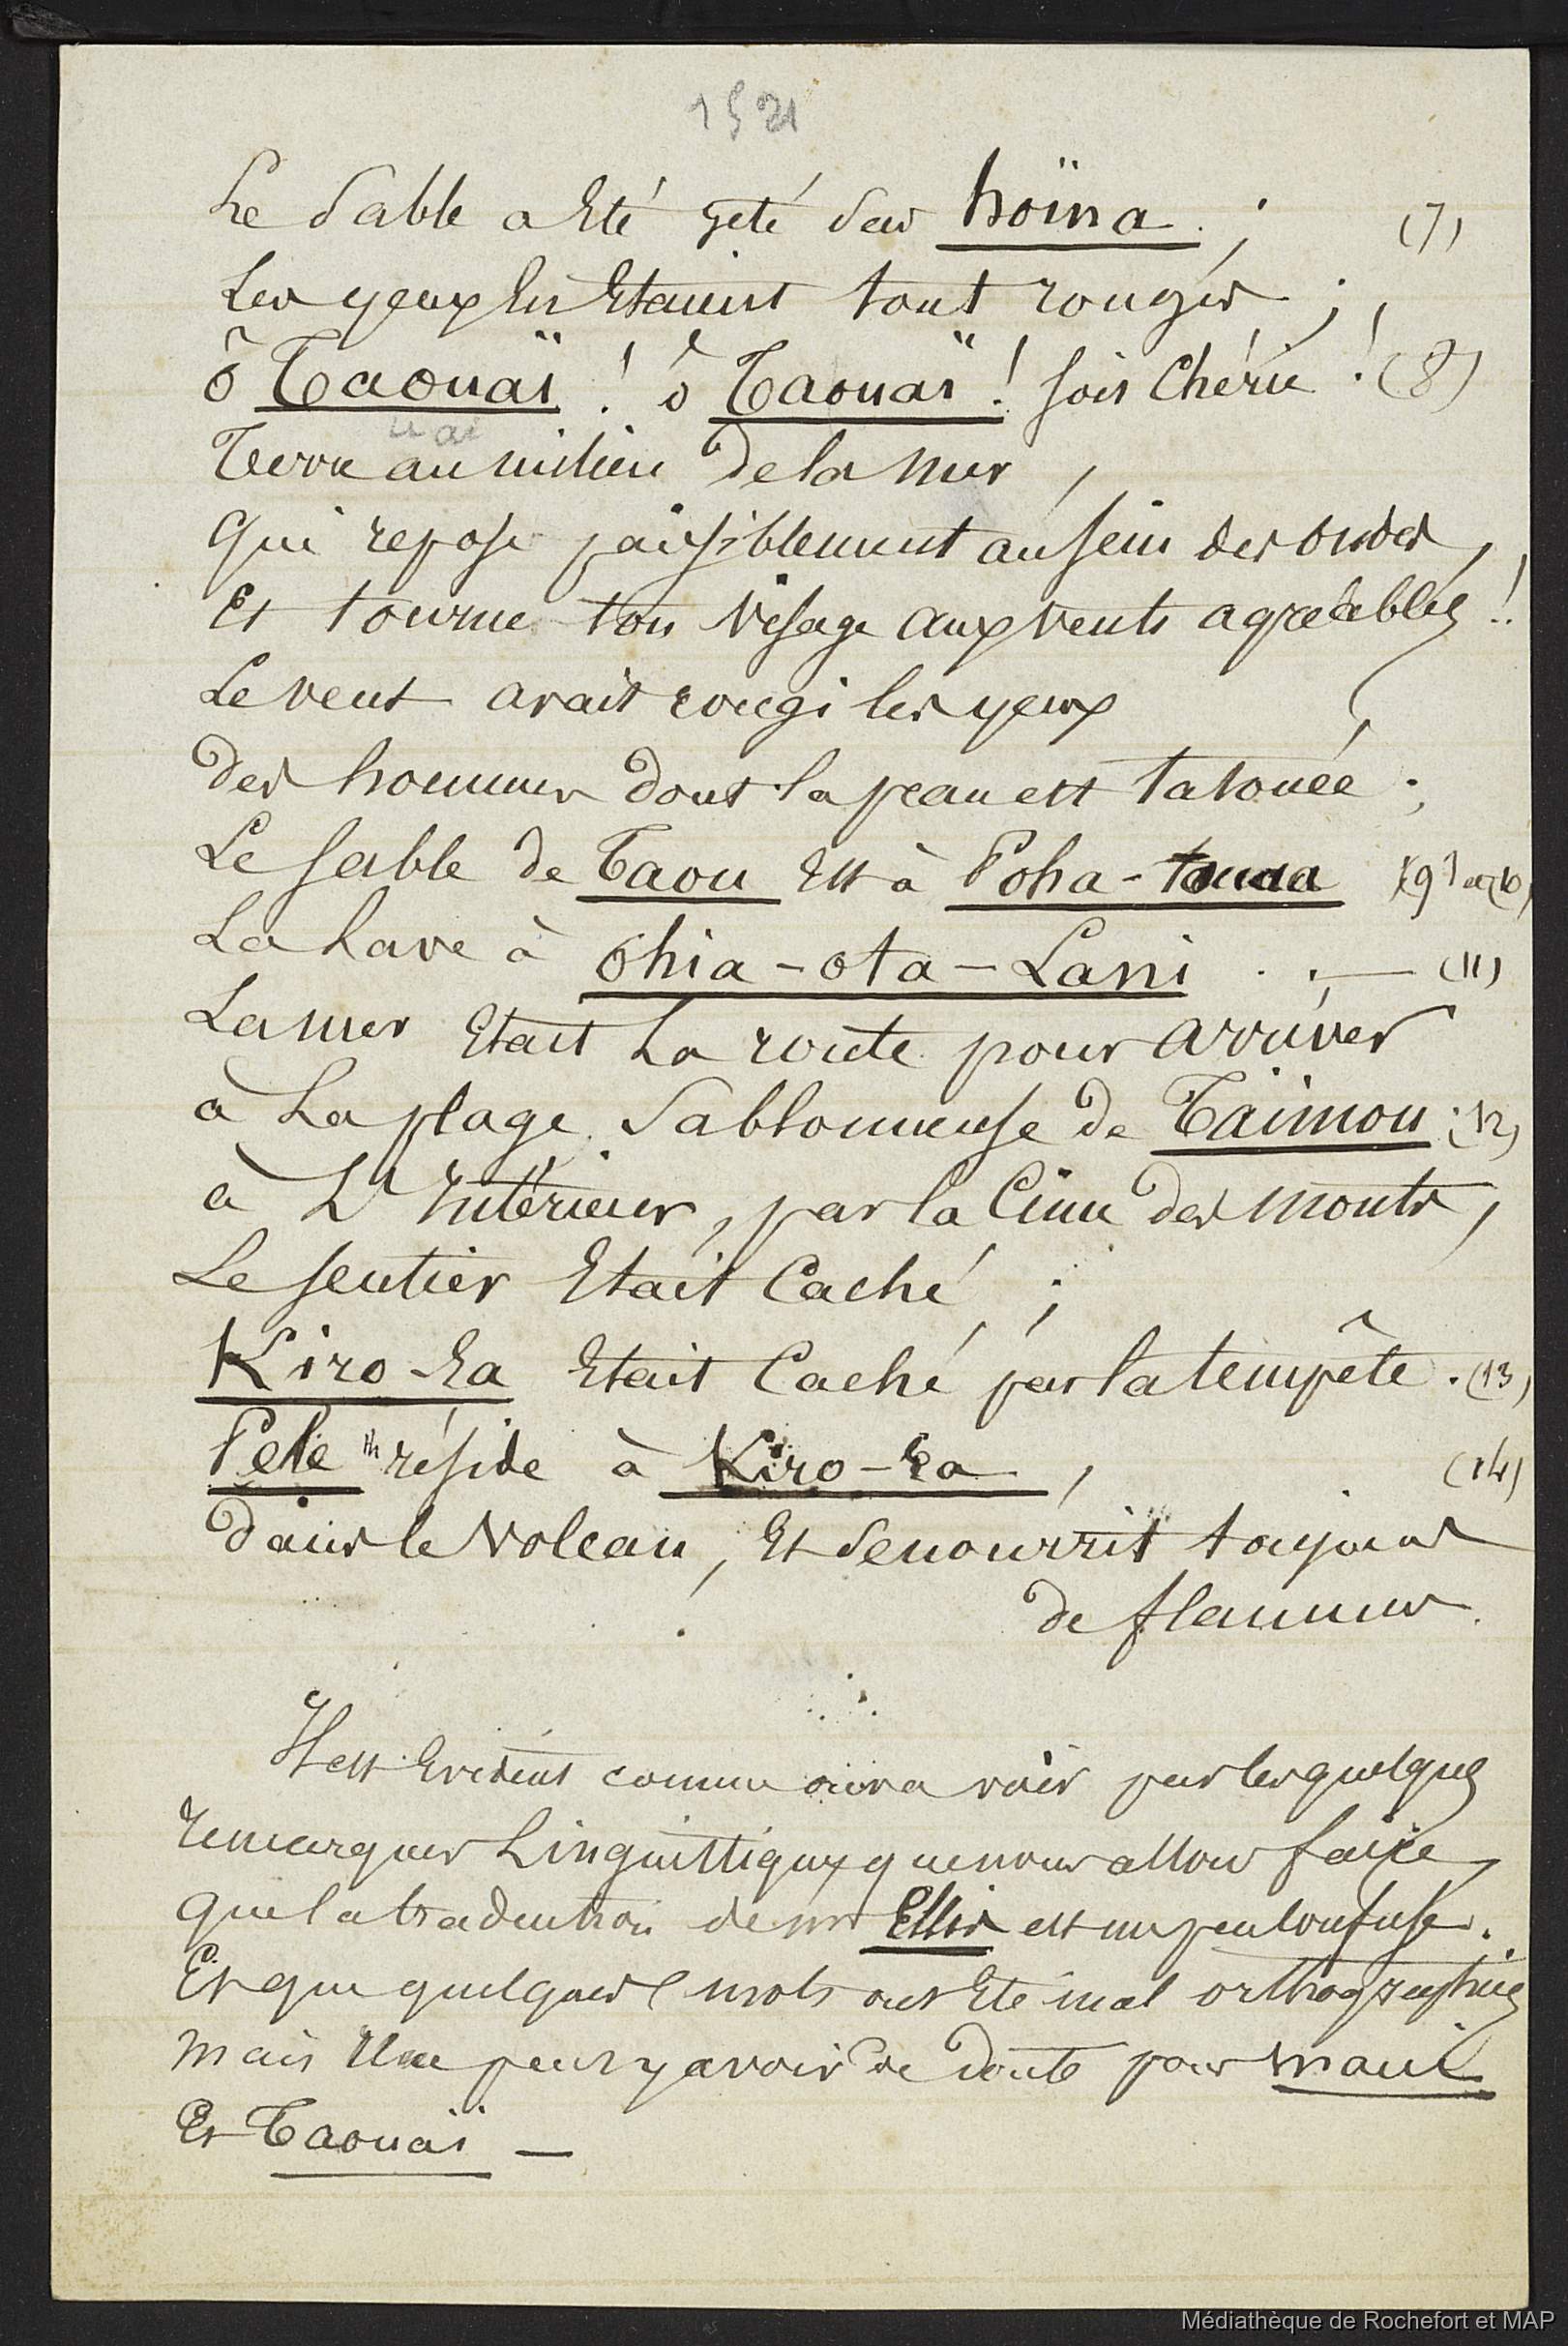 1521
Le Sable a Eté jeté Sur hoïna ; (7)
Les yeux les Etaient tout rouges ;
ô Taouaï ! ô Taouaï ! sois Chérie ! (8)
uai
Terre au milieu de la mer,
Qui repose paisiblement au sein des ondes,
Et tourne ton visage aux vents agréables !
Le vent avait rougi les yeux
des hommes dont la peau est tatouée ;
Le sable de Taou Est à Poha-touaa (9) et (10)
La Lave à Ohia-ota-Lani . — (11)
La mer Etait La route pour arriver
à La plage Sablonneuse de Taïmou ; (12)
à L'Intérieur, par la Cime des monts,
Le sentier Etait Caché ;
Kiro-Ea Etait Caché par la tempête. (13)
Pele réside à Kiro-Ea, (14)
dans le Volcan, Et Se nourrit toujours
de flammes.
Il est Evident comme on va voir par les quelques
remarques Linguistiques que nous allons faire,
que la traduction de mr Ellis est un peu confuse.
Et que quelques mots ont Eté mal orthographiés
mais Il ne peut y avoir de doute pour maui
Et Taouaï —
Médiathèque de Rochefort et MAP